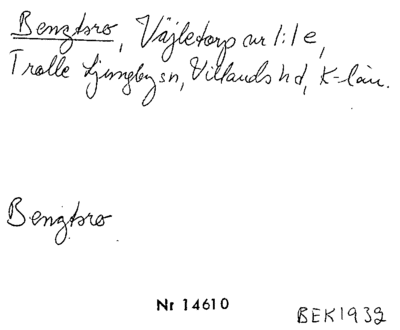 Bengtsro, Väjletorp nr 1:1 e,
Trolle Ljungbysn, Villands hd, K-län.
Bengtsro
Nr 14610
BEK1932